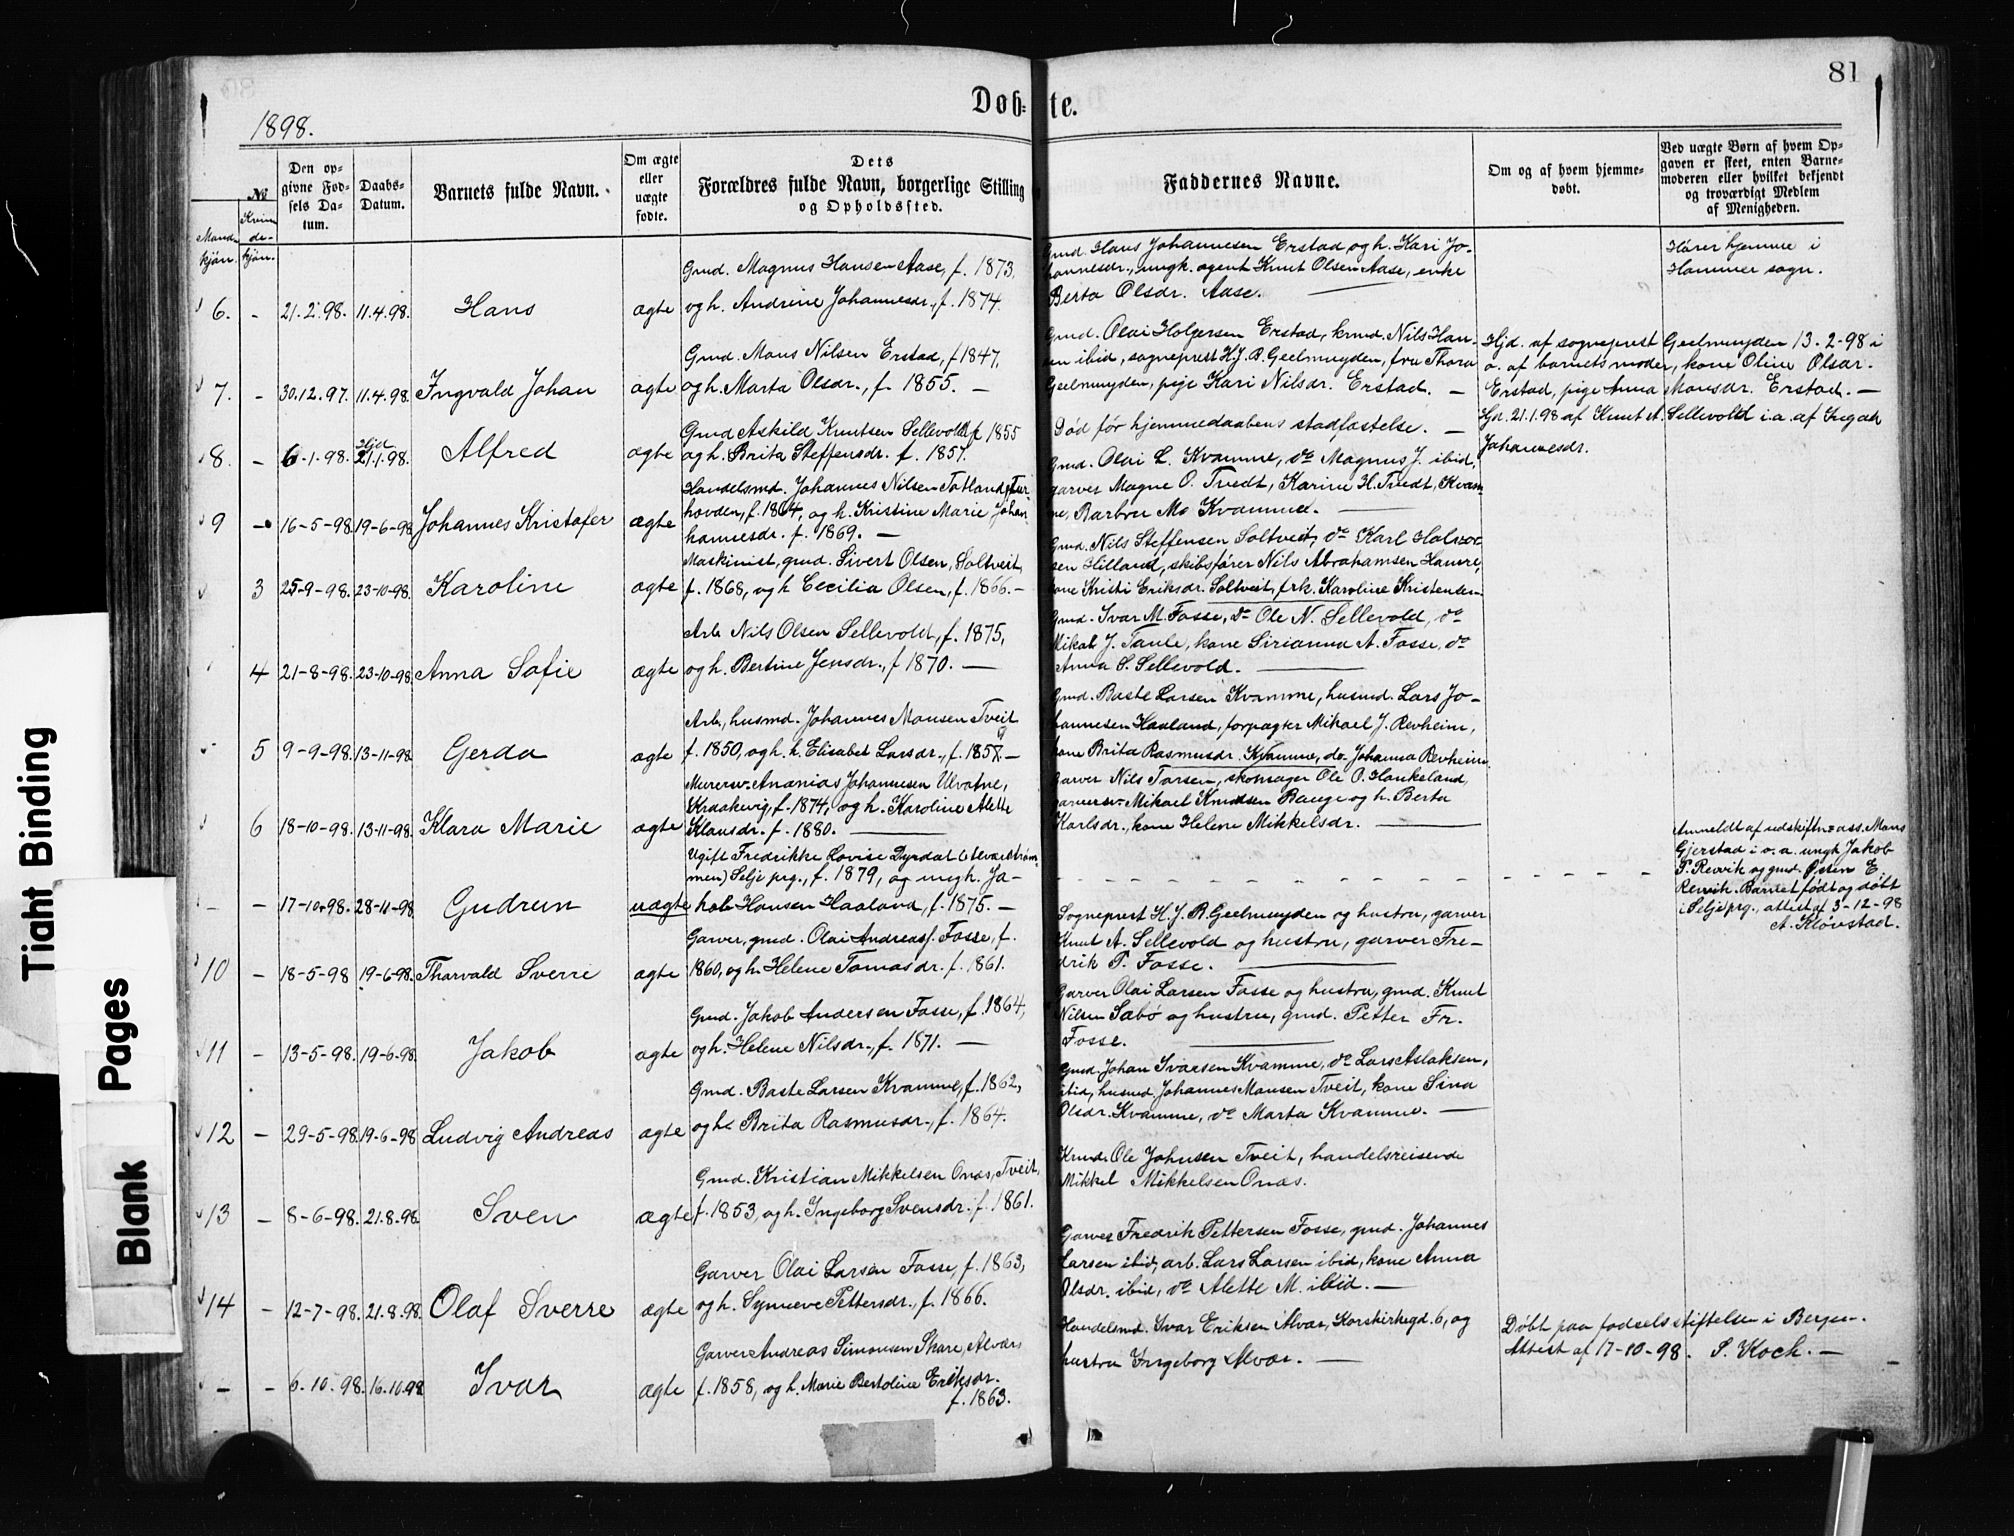 81
Døb-
te.
1898.
№
Mand-
kjøn.
Kvin-
de-
kjøn.
Den op-
givne Fød-
sels Da-
tum.
Daabs-
Datum.
Barnets fulde Navn.
Om ægte
eller
uægte
fødte.
Dets
Forældres fulde Navn, borgerlige Stilling
og Opholdssted.
Faddernes Navne.
Om og af hvem hjemme-
døbt.
Ved uægte Børn af hvem Op-
gaven er skeet, enten Barne-
moderen eller hvilket bekjendt
og troværdigt Medlem
af Menigheden.
6. - 21.2.98. 11.4.98. Hans ægte
Gmd. Magnus Hansen Aase, f. 1873,
og h. Andrine Johannesdr., f. 1874.
Gmd. Hans Johannesen Erstad, og h. Kari Jo-
hannesdr., ungk. agent Knut Olsen Aase, enke
Berta Olsdr. Aase.
Hører hjemme i
Hammer sogn.
7. - 30.12.97. 11.4.98. Ingvald Johan ægte
Gmd. Mons Nilsen Erstad, f. 1847,
og h. Marta Olsdr., f. 1855. —
Gmd. Olai Holgersen Erstad, krmd. Nils Han-
sen ibid, sogneprest H. J. R. Geelmuyden, fru Thora
Geelmuyden, pige Kari Nilsdr. Erstad. —
Hjd. af sogneprest Geelmuyden 13-2-98 i
o. af barnets moder, kone Oline Olsdr.
Erstad, pige Anna Monsdr. Erstad. —
8. - 6-1-98. Hjd 21.1.98. Alfred ægte
Gmd Askild Knutsen Sellevold, f. 1855
og h. Brita Steffensdr. f. 1857.
Død før hjemmedaabens stadfæstelse. —
Hjd. 21.1.98 af Knut A. Sellevold i o. af Ingah
Johannesdr.
9 - 16-5-98 19-6-98 Johannes Kristofer ægte
Handelsmd. Johannes Nilsen Totland, Tur-
hovden, f. 1864, og h. Kristine Marie Johan-
hannesdr. f. 1869. —
Gmd. Olai L. Kvamme, do Magnus J. ibid,
garver Magne O. Tvedt, Karine H. Tvedt, Kvam-
me, Barbru Mo Kvamme. —
3 25-9-98. 23-10-98. Karoline ægte
Maskinist, gmd. Sivert Olsen, Soltveit,
f. 1868, og h Cecilia Olsen, f. 1866. —
Gmd. Nils Steffensen Soltveit, do Karl Halvor-
sen Hilland, skibsfører Nils Abrahamsen Hamre,
kone Kristi Eriksdr. Soltveit, frk. Karoline Kristensen
4 21-8-98. 23-10-98. Anna Sofie ægte
Arb. Nils Olsen Sellevold, f. 1875,
og h. Bertine Jensdr., f 1870. —
Gmd. Ivar M. Fosse, do Ole N. Sellevold, do
Mikal J. Taule, kone Sirianna A. Fosse, do
Anna S. Sellevold. —
5 9-9-98. 13-11-98 Gerda ægte
Arb., husmd. Johannes Monsen Tveit
f. 1850, og h. Elisabet Larsdr., f. 1857. —
Gmd. Baste Larsen Kvamme, husmd. Lars Jo-
hannesen Haaland, forpagter Mikael J. Revheim,
kone Brita Rasmusdr. Kvamme, do Johanna Revheim.
6 18-10-98. 13-11-98. Klara Marie ægte
Murersv. Ananias Johannesen Ulvatne,
Kraakevig, f. 1874, og h. Karoline Alette
Klausdr. f. 1880. —
Garver Nils Tarsen, skomager Ole O. Haukeland,
garversv. Mikael Knudsen Bauge og h. Berta
Karlsdr., kone Helene Mikkelsdr. —
- - 17-10-98. 28-11-98 Gudrun uægte
Ugift Fredrikke Lovise Dyrdal (Alværstrøm-
men) Selje prg., f. 1879, og ungk. Ja-
kob Hansen Haaland, f. 1875. —
Anmeldt af udskiftn=ass. Mons
Gjerstad i o. a. ungk. Jakob
P. Revvik og gmd. Øsien E.
Revvik. Barnet født og døbt
i Selje prg., attest af 3-12-98
A. Kløvstad.
10 - 18-5-98 19-6-98. Tharvald Sverre ægte
Garver, gmd. Olai Andreass. Fosse, f.
1860, og h. Helene Tomasdr. f. 1861.
Sogneprest H. J. R. Geelmuyden og hustru, garver
Knut A. Sellevold og hustru, garver Fre-
drik P. Fosse. —
11 - 13-5-98. 19-6-98. Jakob ægte
Gmd. Jakob Andersen Fosse, f. 1864,
og h. Helene Nilsdr., f. 1871. —
Garver Olai Larsen Fosse og hustru, gmd. Knut
Nilsen Sabø og hustru, gmd. Petter Fr.
Fosse. —
12 - 29-5-98. 19-6-98 Ludvig Andreas ægte
Gmd. Baste Larsen Kvamme, f. 1862,
og h. Brita Rasmusdr., f. 1864.
Gmd. Johan Ivarsen Kvamme, do Lars Aslaksen,
ibid, husmd. Johannes Monsen Tveit, kone Sina
Olsdr. Kvamme, do Marta Kvamme. —
13 - 8-6-98. 21.8.98. Sven ægte
Gmd. Kristian Mikkelsen Onas, Tveit,
f. 1853, og h. Ingeborg Svensdr. f. 1861.
Krmd. Ole Johnsen Tveit, handelsreisende
Mikkel Mikkelsen Onas.
14 - 12-7-98. 21.8.98. Olaf Sverre ægte
Garver Olai Larsen Fosse, f. 1863,
og h. Synneve Pettersdr., f. 1866.
Garver Fredrik Pettersen Fosse, gmd. Johannes
Larsen ibid, arb. Lars Larsen ibid, kone Anna
Olsdr. ibid, do Alette M. ibid. —
- - 6.10.98. 16.10.98. Ivar ægte
Garver Andreas Simonsen Skare, Alvær,
f. 1858, og h. Marie Bertoline Eriksdr.
f. 1863.
Handelsmd. Ivar Eriksen Alvær, Korskirkegd. 6, og
hustru Ingeborg Alvær. —
Døbt paa fødselsstiftelsen i Bergen.
Attest af 17-10-98. S. Koch. —
Tight Binding
Blank Pages